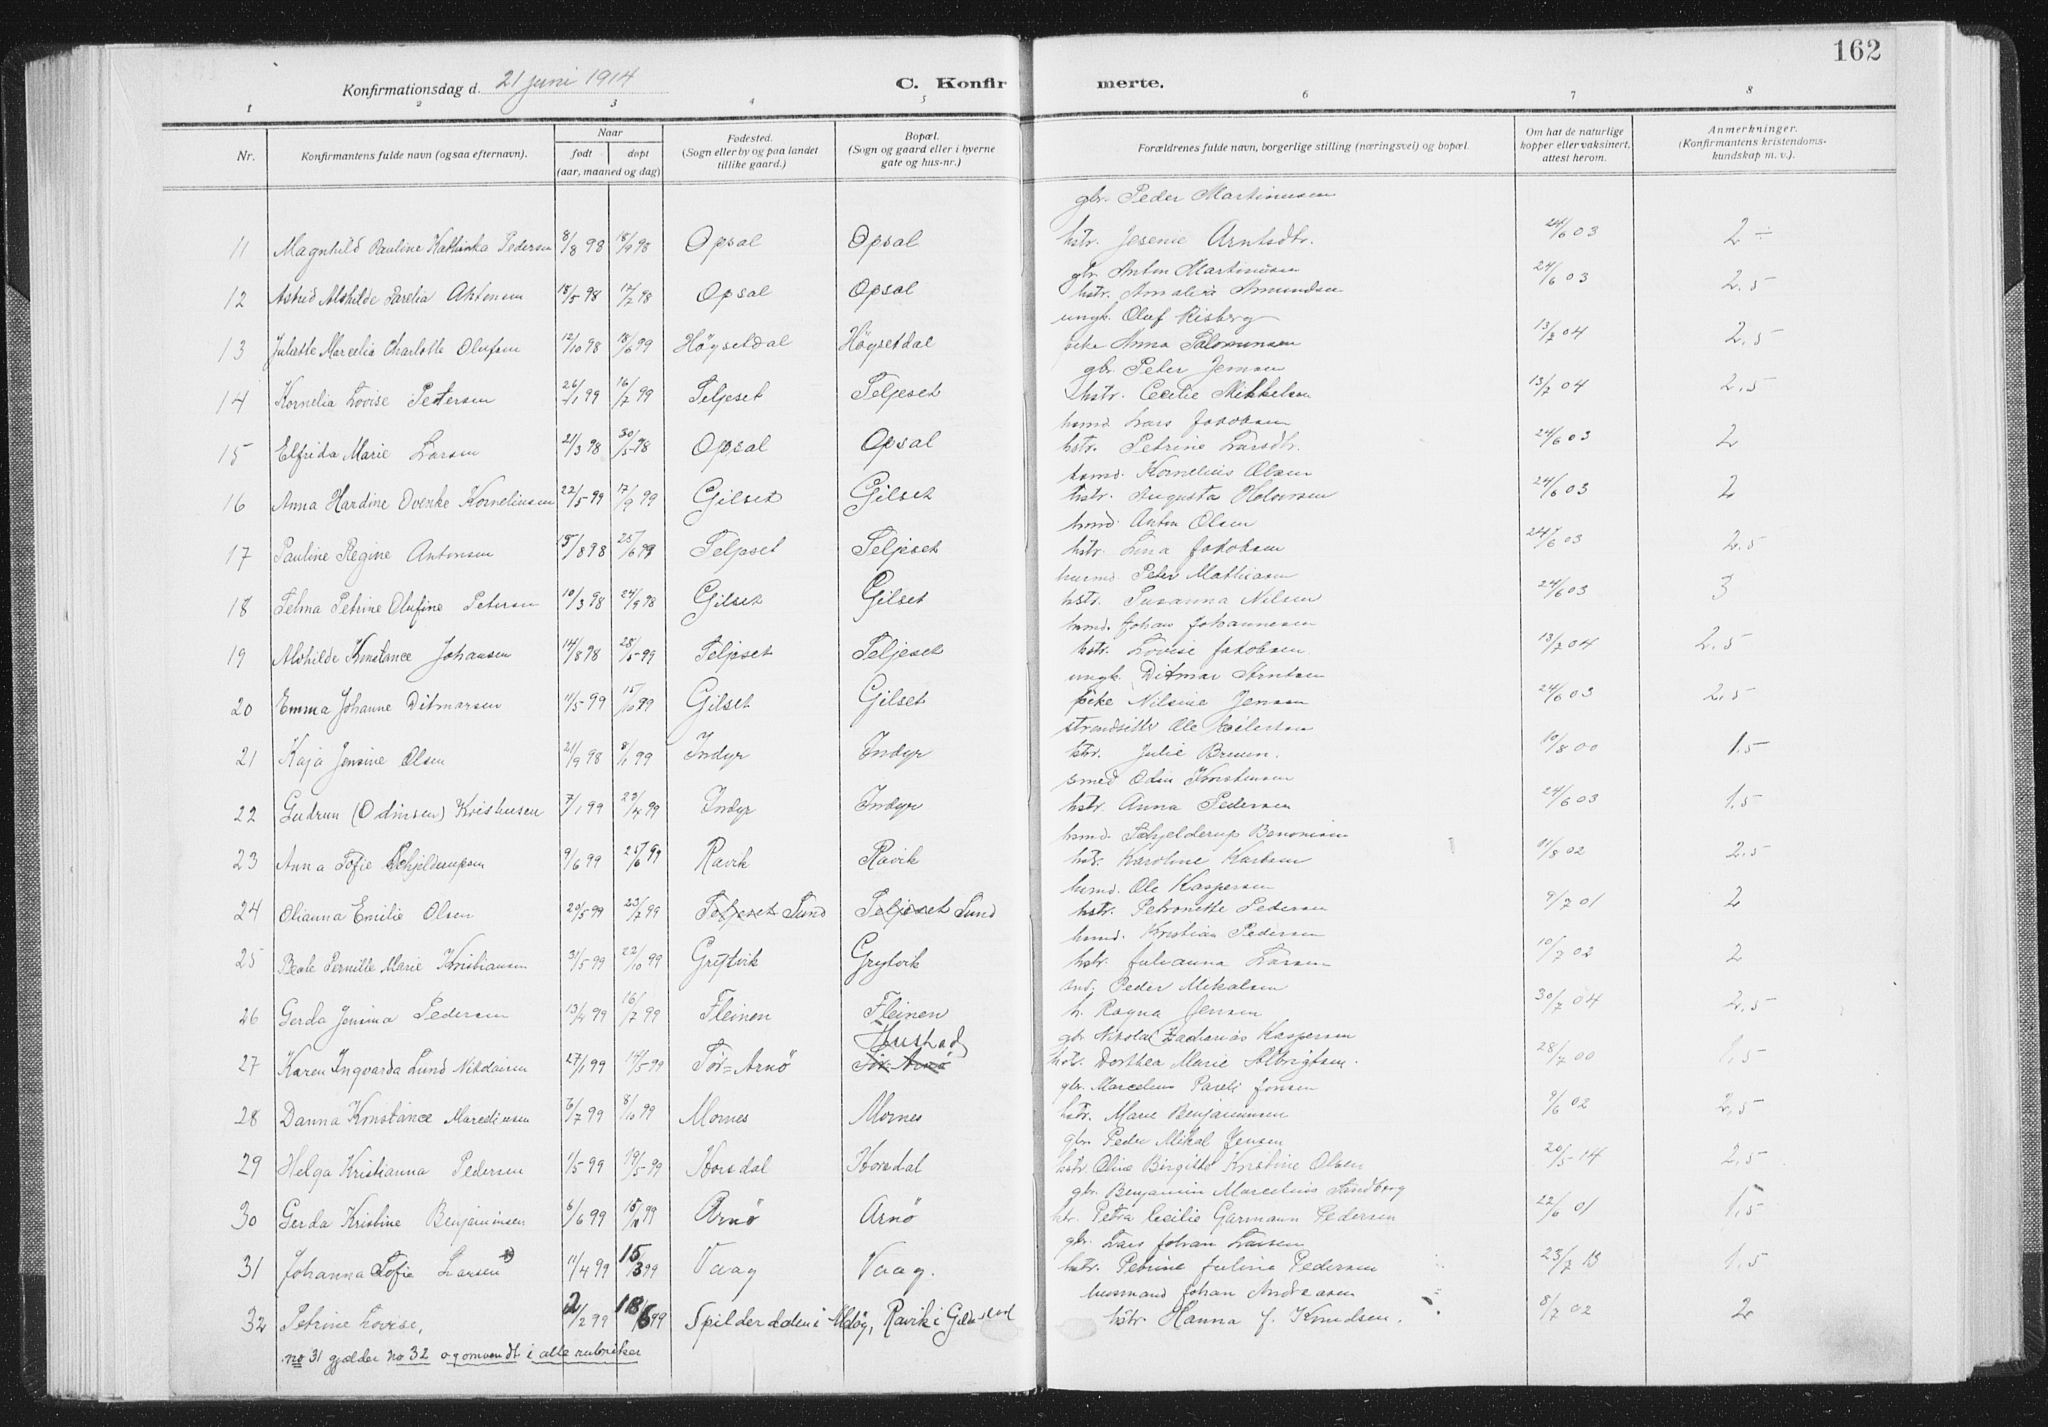 162
Konfirmationsdag d. 21 juni 1914 C. Konfir merte.
1 2 3 4 5 6 7 8
Nr. Konfirmantens fulde navn (ogsaa efternavn). Naar født døpt (aar, maaned og dag) Fødested. (Sogn eller by og paa landet tillike gaard.) Bopæl. (Sogn og gaard eller i byerne gate og hus-nr.) Forældrenes fulde navn, borgerlige stilling (næringsvei) og bopæl. Om hat de naturlige kopper eller vaksinert, attest herom. Anmerkninger. (Konfirmantens kristendomskundskap m. v.).
gbr. Peder Martinussen
11 Magnhild Pauline Kathinka Pedersen 8/8 98 18/9 98 Opsal Opsal hstr. Jesenie Arntsdtr. 24/6 03 2 ÷
gbr. Anton Martinusen
12 Astrid Alshilde Antonsen 18/5 98 17/2 98 Opsal Opsal hstr. Amundsen 24/6 03 2.5
ungk. Oluf Risberg
13 Juliette Marcelia Charlotte Olufsen 12/10 98 18/6 99 Högsetdal Höysetdal pike Anna Salomonsen 13/7 04 2.5
gbr. Peter Jensen
14 Kornelia Lovise Petersen 26/1 99 16/7 99 Seljeset Seljeset hstr. Cecilie Mikkelsen 13/7 04 2.5
husmd. Lars Jakobsen
15 Elfrida Marie Larsen 21/3 98 30/5 98 Opsal Opsal hstr. Petrine Larsdtr. 24/6 03 2
husmd. Kornelius Olsen
16 Anna Hardine Ovenke Korneliussen 22/5 99 17/9 99 Gilset Gilset hstr. Augusta 24/6 03 2
husmd. Anton Olsen
17 Pauline Regine Antonsen 15/8 98 25/6 99 Seljeset Seljeset hstr. Lina Jakobsen 24/6 03 2.5
husmd. Peter Mathiasen
18 Selma Petrine Olufine Petersen 10/3 98 24/9 98 Gilset Gilset hstr. Susanna Nilsen 24/6 03 3
husmd. Johan Johannesen
19 Alshilde Konstance Johansen 14/8 98 28/5 99 Seljeset Seljeset hstr. Lovise Jakobsen 13/7 04 2.5
ungk. Ditmar Arntsen
20 Emma Johanne Ditmarsen 11/5 99 15/10 99 Gilset Gilset pike Nilsine Jensen 24/6 03 2.5
strandsitter Ole
21 Kaja Jensine Olsen 21/9 98 8/1 99 Indyr Indyr hstr. Julie Bruun. 10/8 00 1.5
smed Odin Kristensen
22 Gudrun (Odinsen) Kristensen 7/1 99 23/4 99 Indyr Indyr hstr. Anna Pedersen 24/6 03 1.5
husmd. Schjelderup Benonisen
23 Anna Sofie Schjelderupsen 9/6 99 25/6 99 Ravik Ravik hstr. Karoline Karlsen 11/8 02 2.5
husmd. Ole Kaspersen
24 Olianna Emilie Olsen 20/5 99 23/7 99 Seljeset Sund Seljeset Sund hstr. Petronette Pedersen 9/7 01 2
husmd. Kristian Pedersen
25 Beate Pernille Marie Kristiansen 31/5 99 22/10 99 Grytvik Grytvik hstr. Julianna Larsen 10/7 02 2
Peder Mikalsen
26 Gerda Jensina Pedersen 13/4 99 16/7 99 Fleinen Fleinen h. Ragna Jensen 30/7 04 2.5
Hustad gbr. Nikolai Zacharias Kaspersen
27 Karen Ingvarda Lund Nikolaisen 27/1 99 14/5 99 Sör=Arnö Sör-Arnö hstr. Dorthea Marie Albrigtsen. 28/7 00 1,5
gbr. Marcelius Pareli Jonsen
28 Danna Konstance Marcelinsen 6/7 99 8/10 99 Mornes Mornes hstr. Marie Benjaminsen 9/6 02 2,5
gbr. Peder Mikal Jensen
29 Helga Kristianna Pedersen 1/5 99 19/5 99 Korsdal Korsdal hstr. Oline Birgitte Kristine Olsen 20/5 14 2.5
gbr. Benjamin Marcelius Sandberg
30 Gerda Kristine Benjaminsen 6/6 99 15/10 99 Arnö Arnö hstr. Petra Cecilie Garmann Pedersen 22/6 01 1,5
gbr. Lars Johan Larsen
31 Johanna Sofie Larsen *) 11/4 99 15/3 99 Vaag Vaag. hstr. Petrine Juline Pedersen 23/7 13 1.5
husmand Johan Andreasen
32 Petrine Lovise, 2/2 99 18/6 99 Spilderdalen i Meløy, Ravik i Gildeskaal hstr. Hanna J. Knudsen. 8/7 02 2
no 31 gjælder no 32 og omvendt i alle rubriker